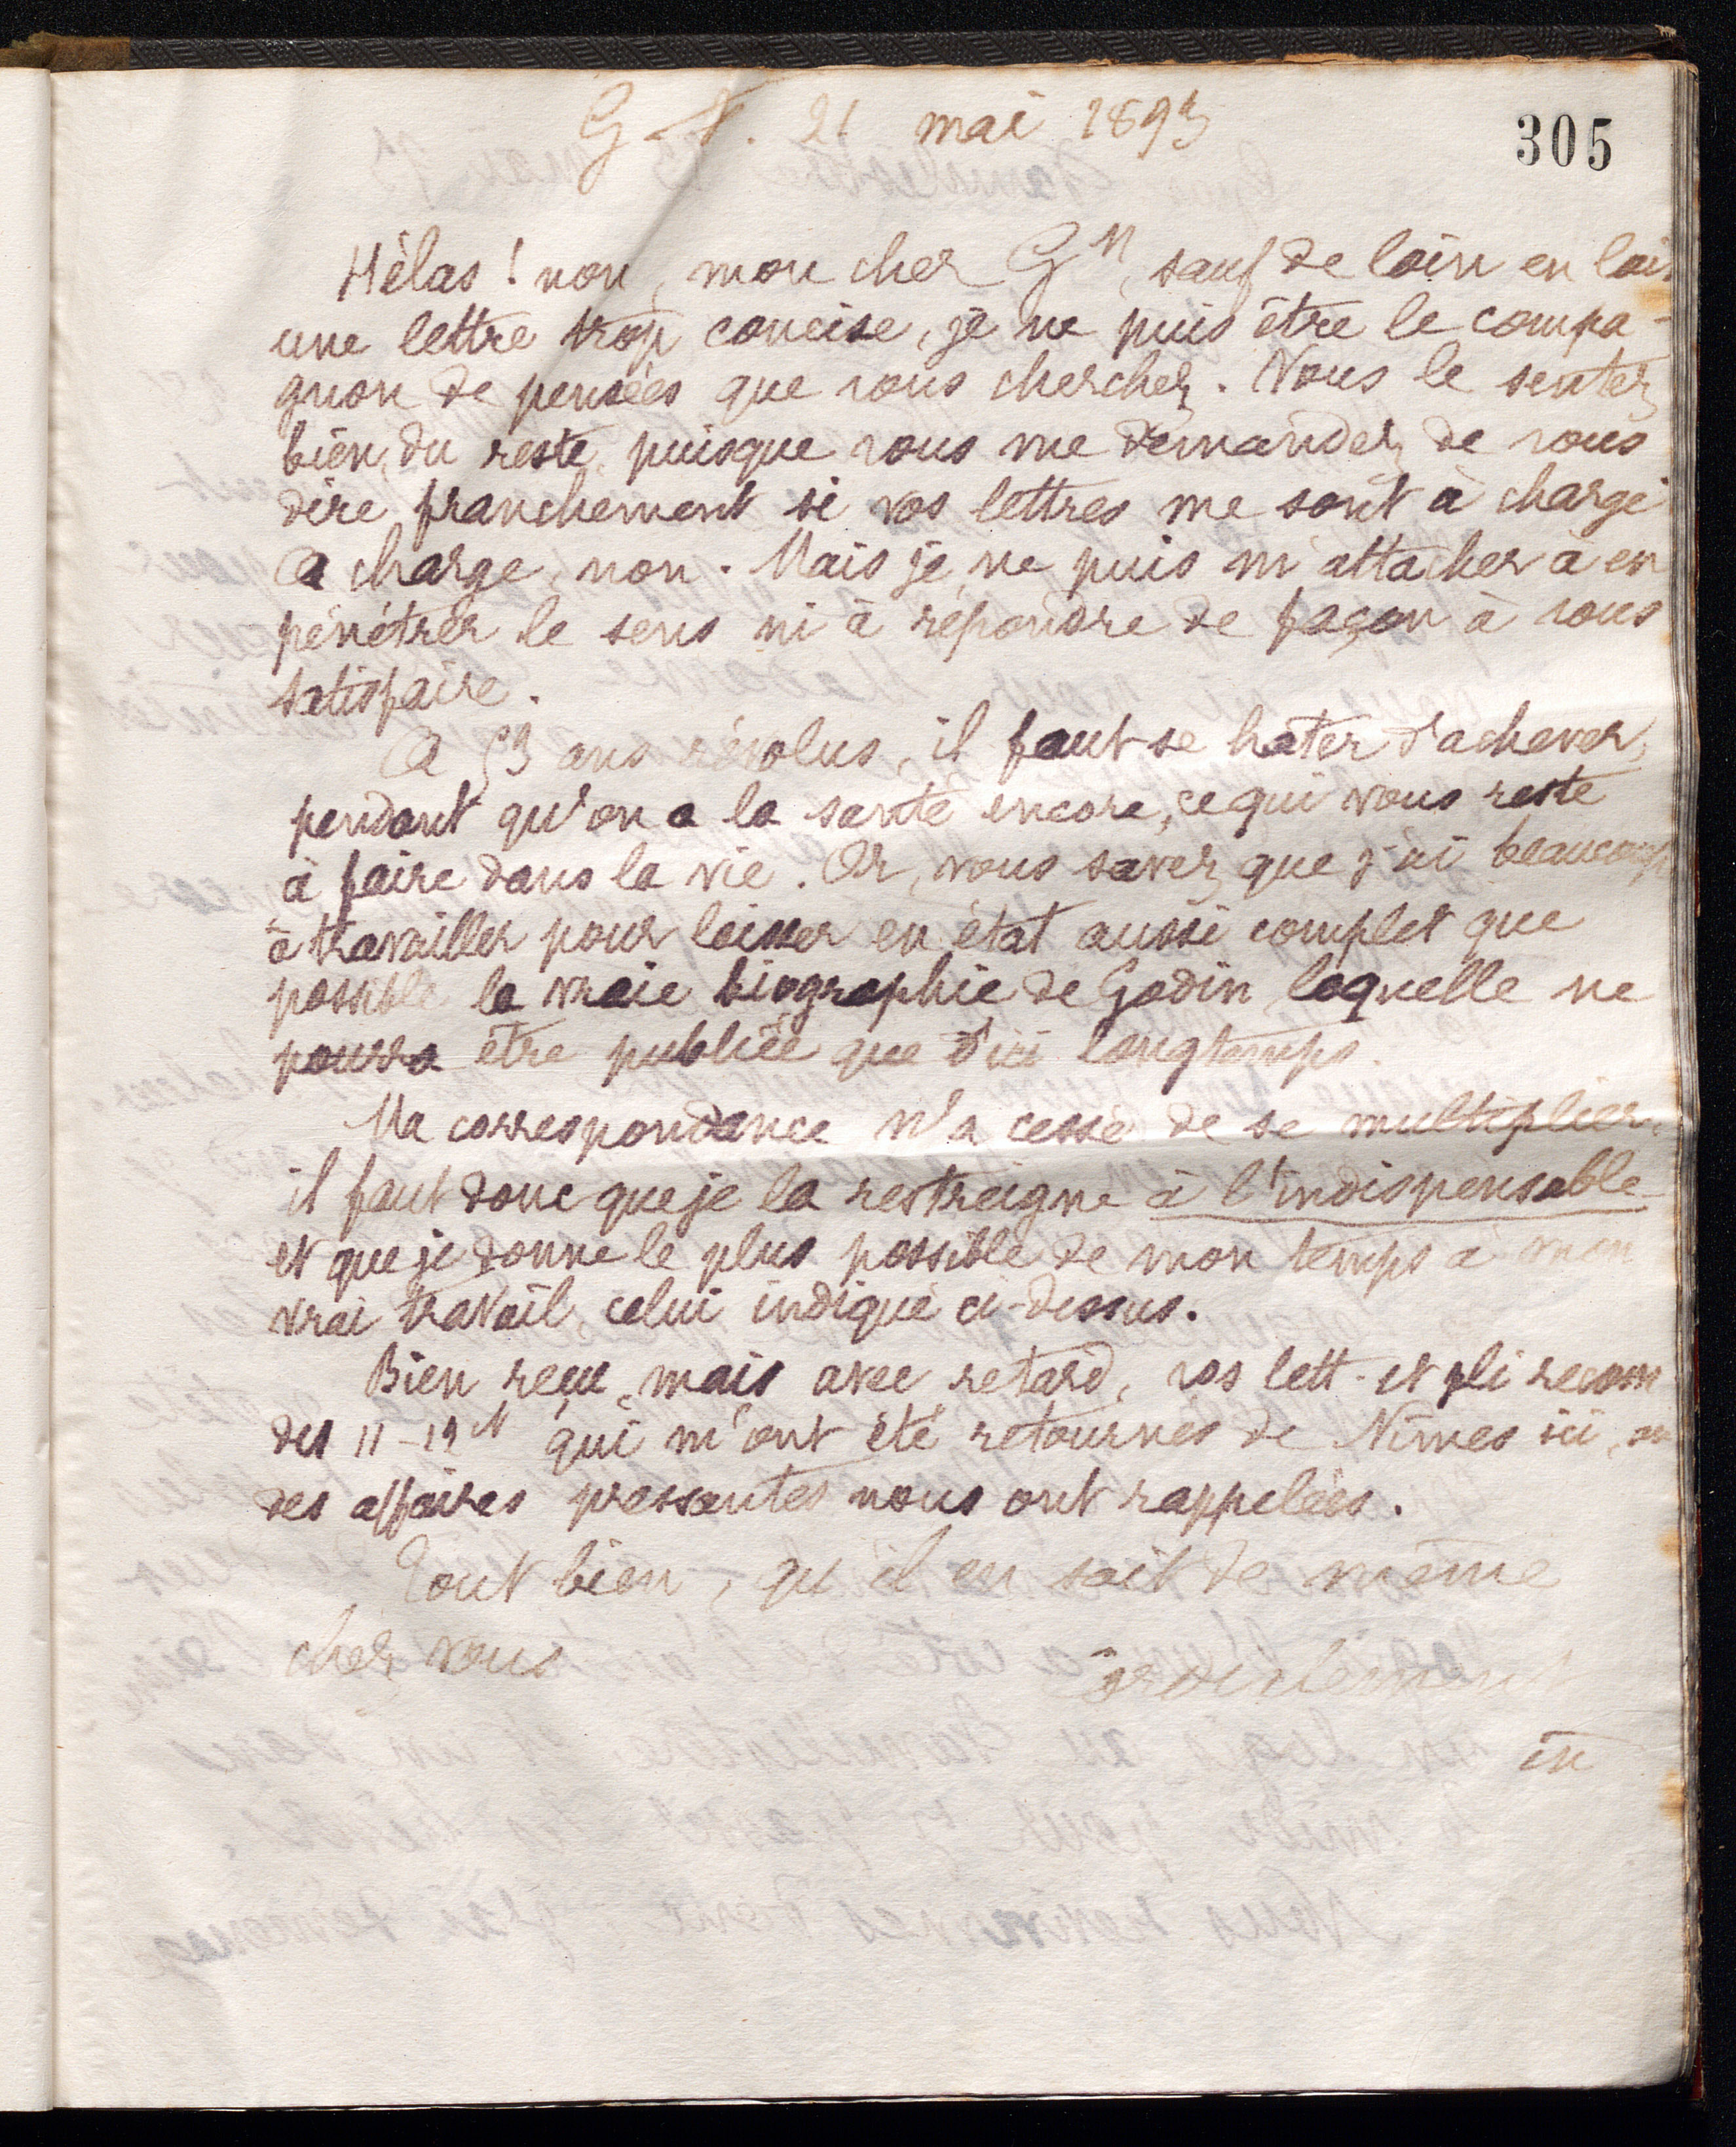 G F. 21 mai 1893
305
Hélas ! non, mon cher Gⁿ, sauf de loin en loin
une lettre trop concise, je ne puis être le compa-
gnon de pensées que vous cherchez. Vous le sentez
bien, du reste, puisque vous me demandez de vous
dire franchement si vos lettres me sont à charge
A charge, non. Mais je ne puis m'attacher à en
pénétrer le sens ni à répondre de façon à vous
satisfaire.
A 53 ans révolus, il faut se hater d'achever,
pendant qu'on a la santé encore, ce qui vous reste
à faire dans la vie. Or, vous savez que j'ai beaucoup
à travailler pour laisser en état aussi complet que
possible la vraie biographie de Godin laquelle ne
pourra être publiée que d'ici longtemps.
Ma correspondance n'a cessé de se multiplier,
il faut donc que je la restreigne à l'indispensable
et que je donne le plus possible de mon temps à mon
vrai travail, celui indiqué ci-dessus.
Bien reçu, mais avec retard, vos lett. et pli recom
des 11-19 ct qui m'ont été retournés de Nîmes ici, où
des affaires pressantes nous ont rappelées.
Tout bien, qu'il en soit de même
chez vous
Cordialement